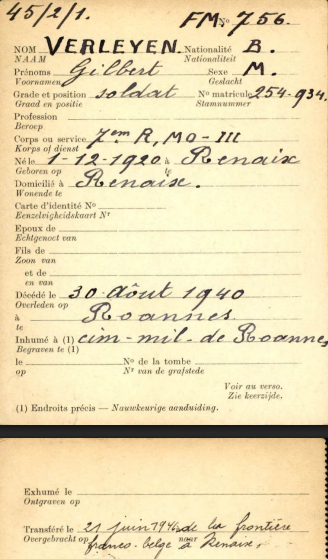 45/2/1. FM No 756.
NOM VERLEYEN. Nationalité B.
NAAM Nationaliteit
Prénoms Gilbert Sexe M.
Voornamen Geslacht
Grade et position soldat No matricule 254-934.
Graad en positie Stamnummer
Profession
Beroep
Corps ou service 7em R, MO-III
Korps of dienst
Né le 1-12-1920 à Renaix
Geboren op te
Domicilié à Renaix.
Wonende te
Carte d'identité No
Eenzelvigheidskaart Nr
Epoux de
Echtgenoot van
Fils de
Zoon van
et de
en van
Décédé le 30 août 1940
Overleden op
à Roannes
te
Inhumé à (1) cim-mil-de Roannes
Begraven te (1)
le No de la tombe
op Nr van de grafstede
Voir au verso.
Zie keerzijde.
(1) Endroits précis — Nauwkeurige aanduiding.
Exhumé le
Ontgraven op
Transféré le 21 juin 1946 de la frontière
Overgebracht op naar
franco-belge à Renaix.